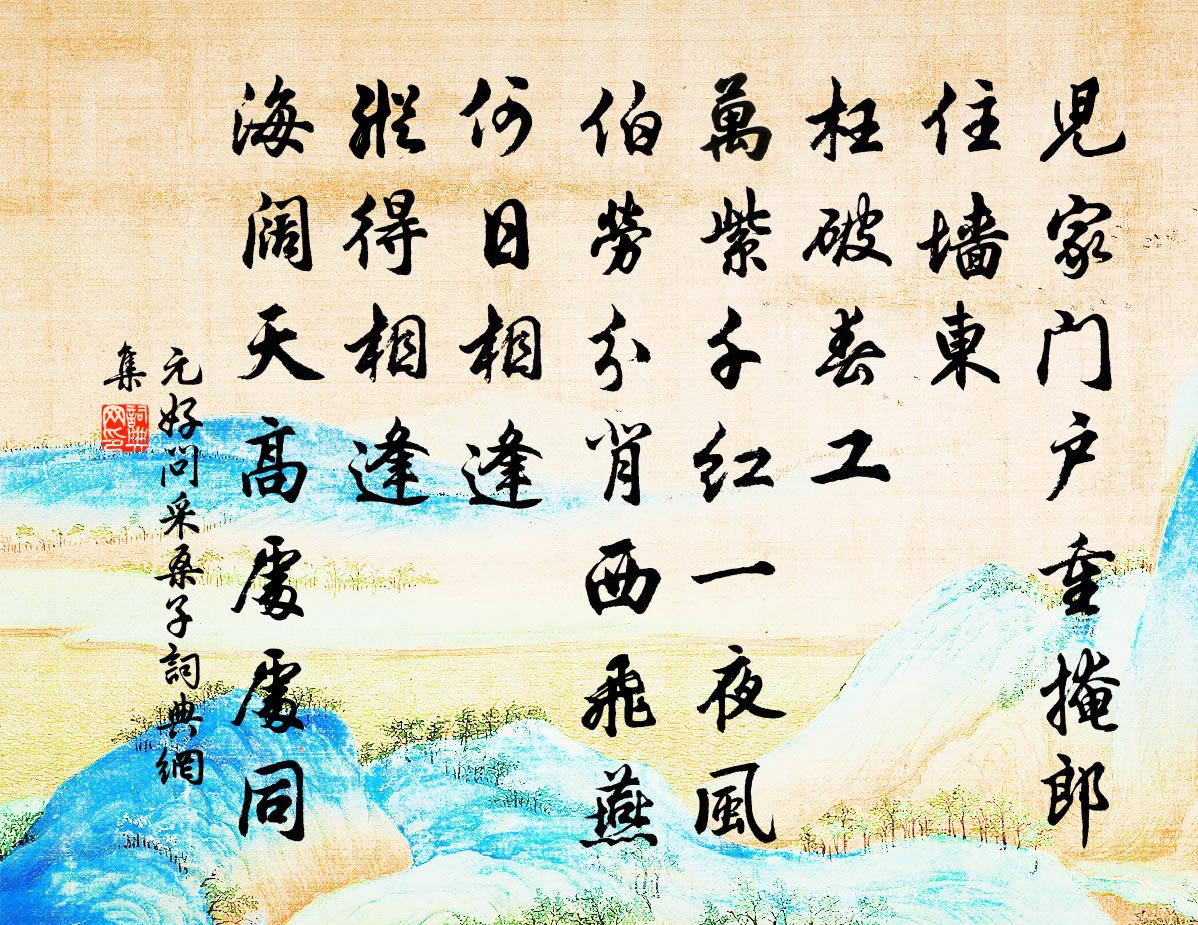 児家门户重掩郎
住墙東
枉破春工
萬紫千红一夜風
伯勞分背西飛燕
何日相逢
縱得相逢
海阔天高處處同
元好问采桑子詞典網
集
詞典网印